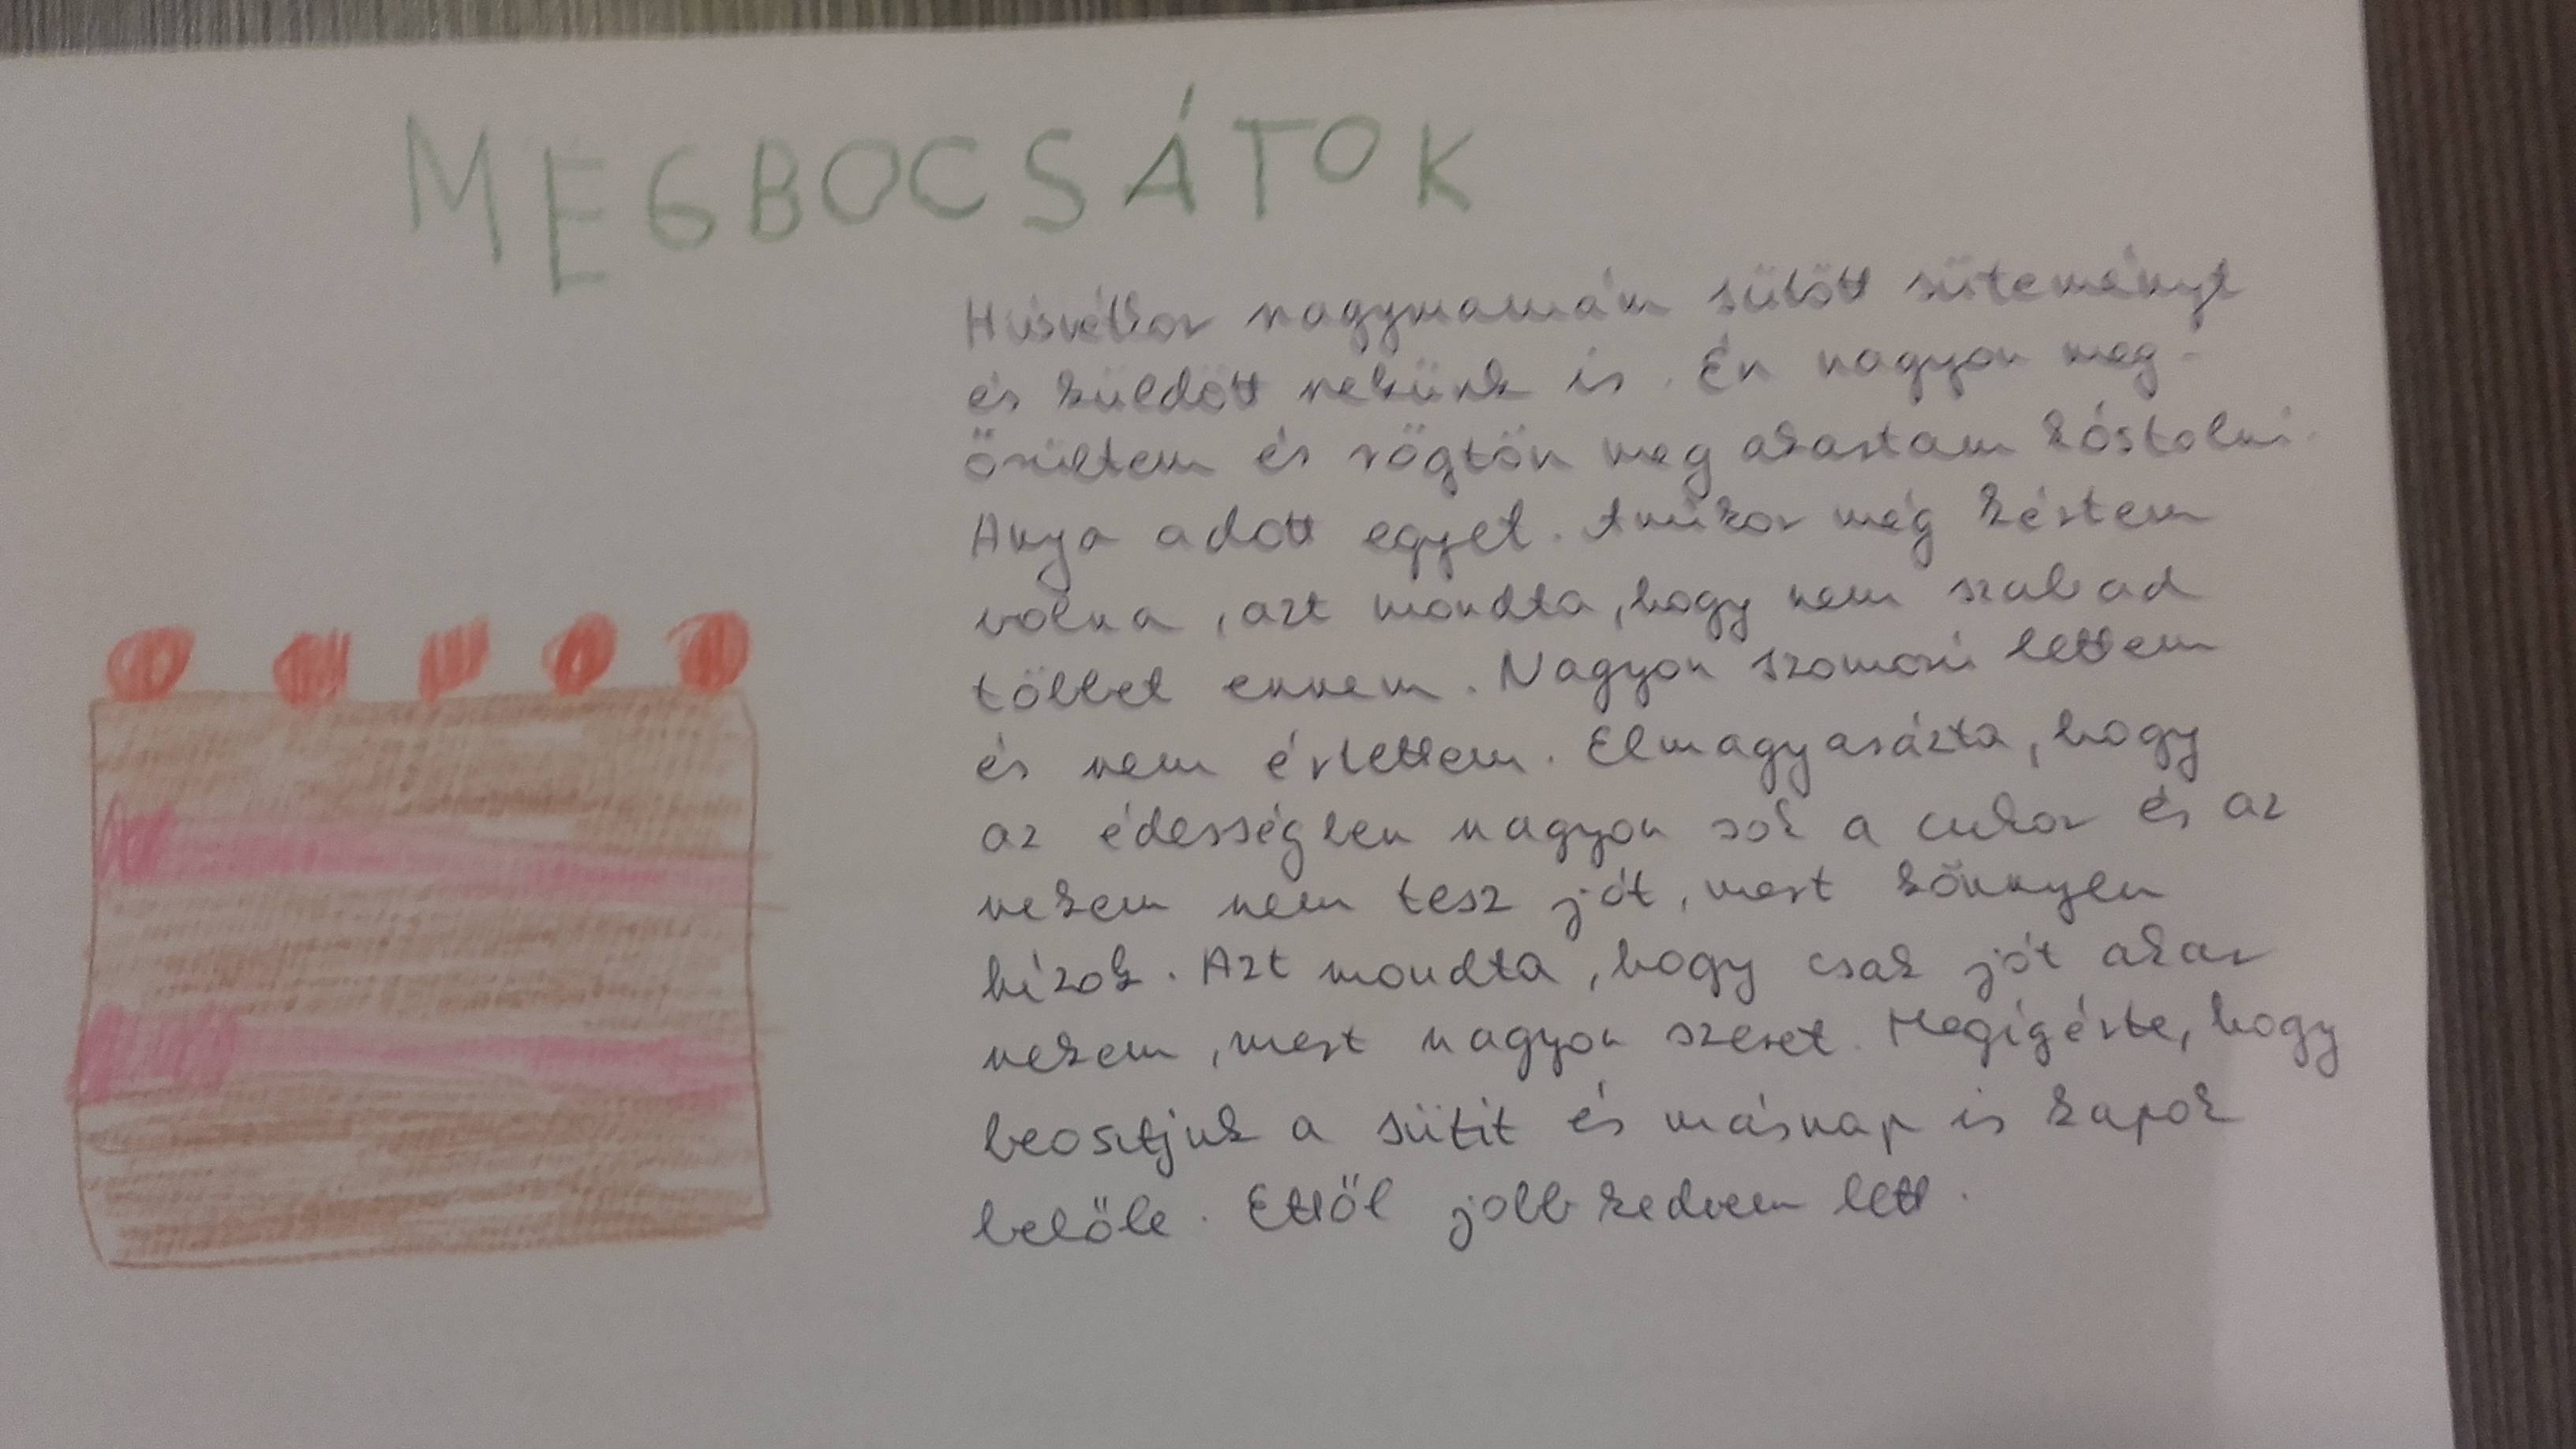 MEGBOCSÁTOK
Húsvétkor nagymamám sütött süteményt
és küldött nekünk is. Én nagyon meg-
örültem és rögtön meg akartam kóstolni.
Anya adott egyet. Amikor még kértem
volna, azt mondta, hogy nem szabad
többet ennem. Nagyon szomorú lettem
és nem értettem. Elmagyarázta, hogy
az édességben nagyon sok a cukor és az
nekem nem tesz jót, mert könnyen
hízok. Azt mondta, hogy csak jót akar
nekem, mert nagyon szeret. Megígérte, hogy
beosztjuk a sütit és másnap is kapok
belőle. Ettől jobb kedvem lett.